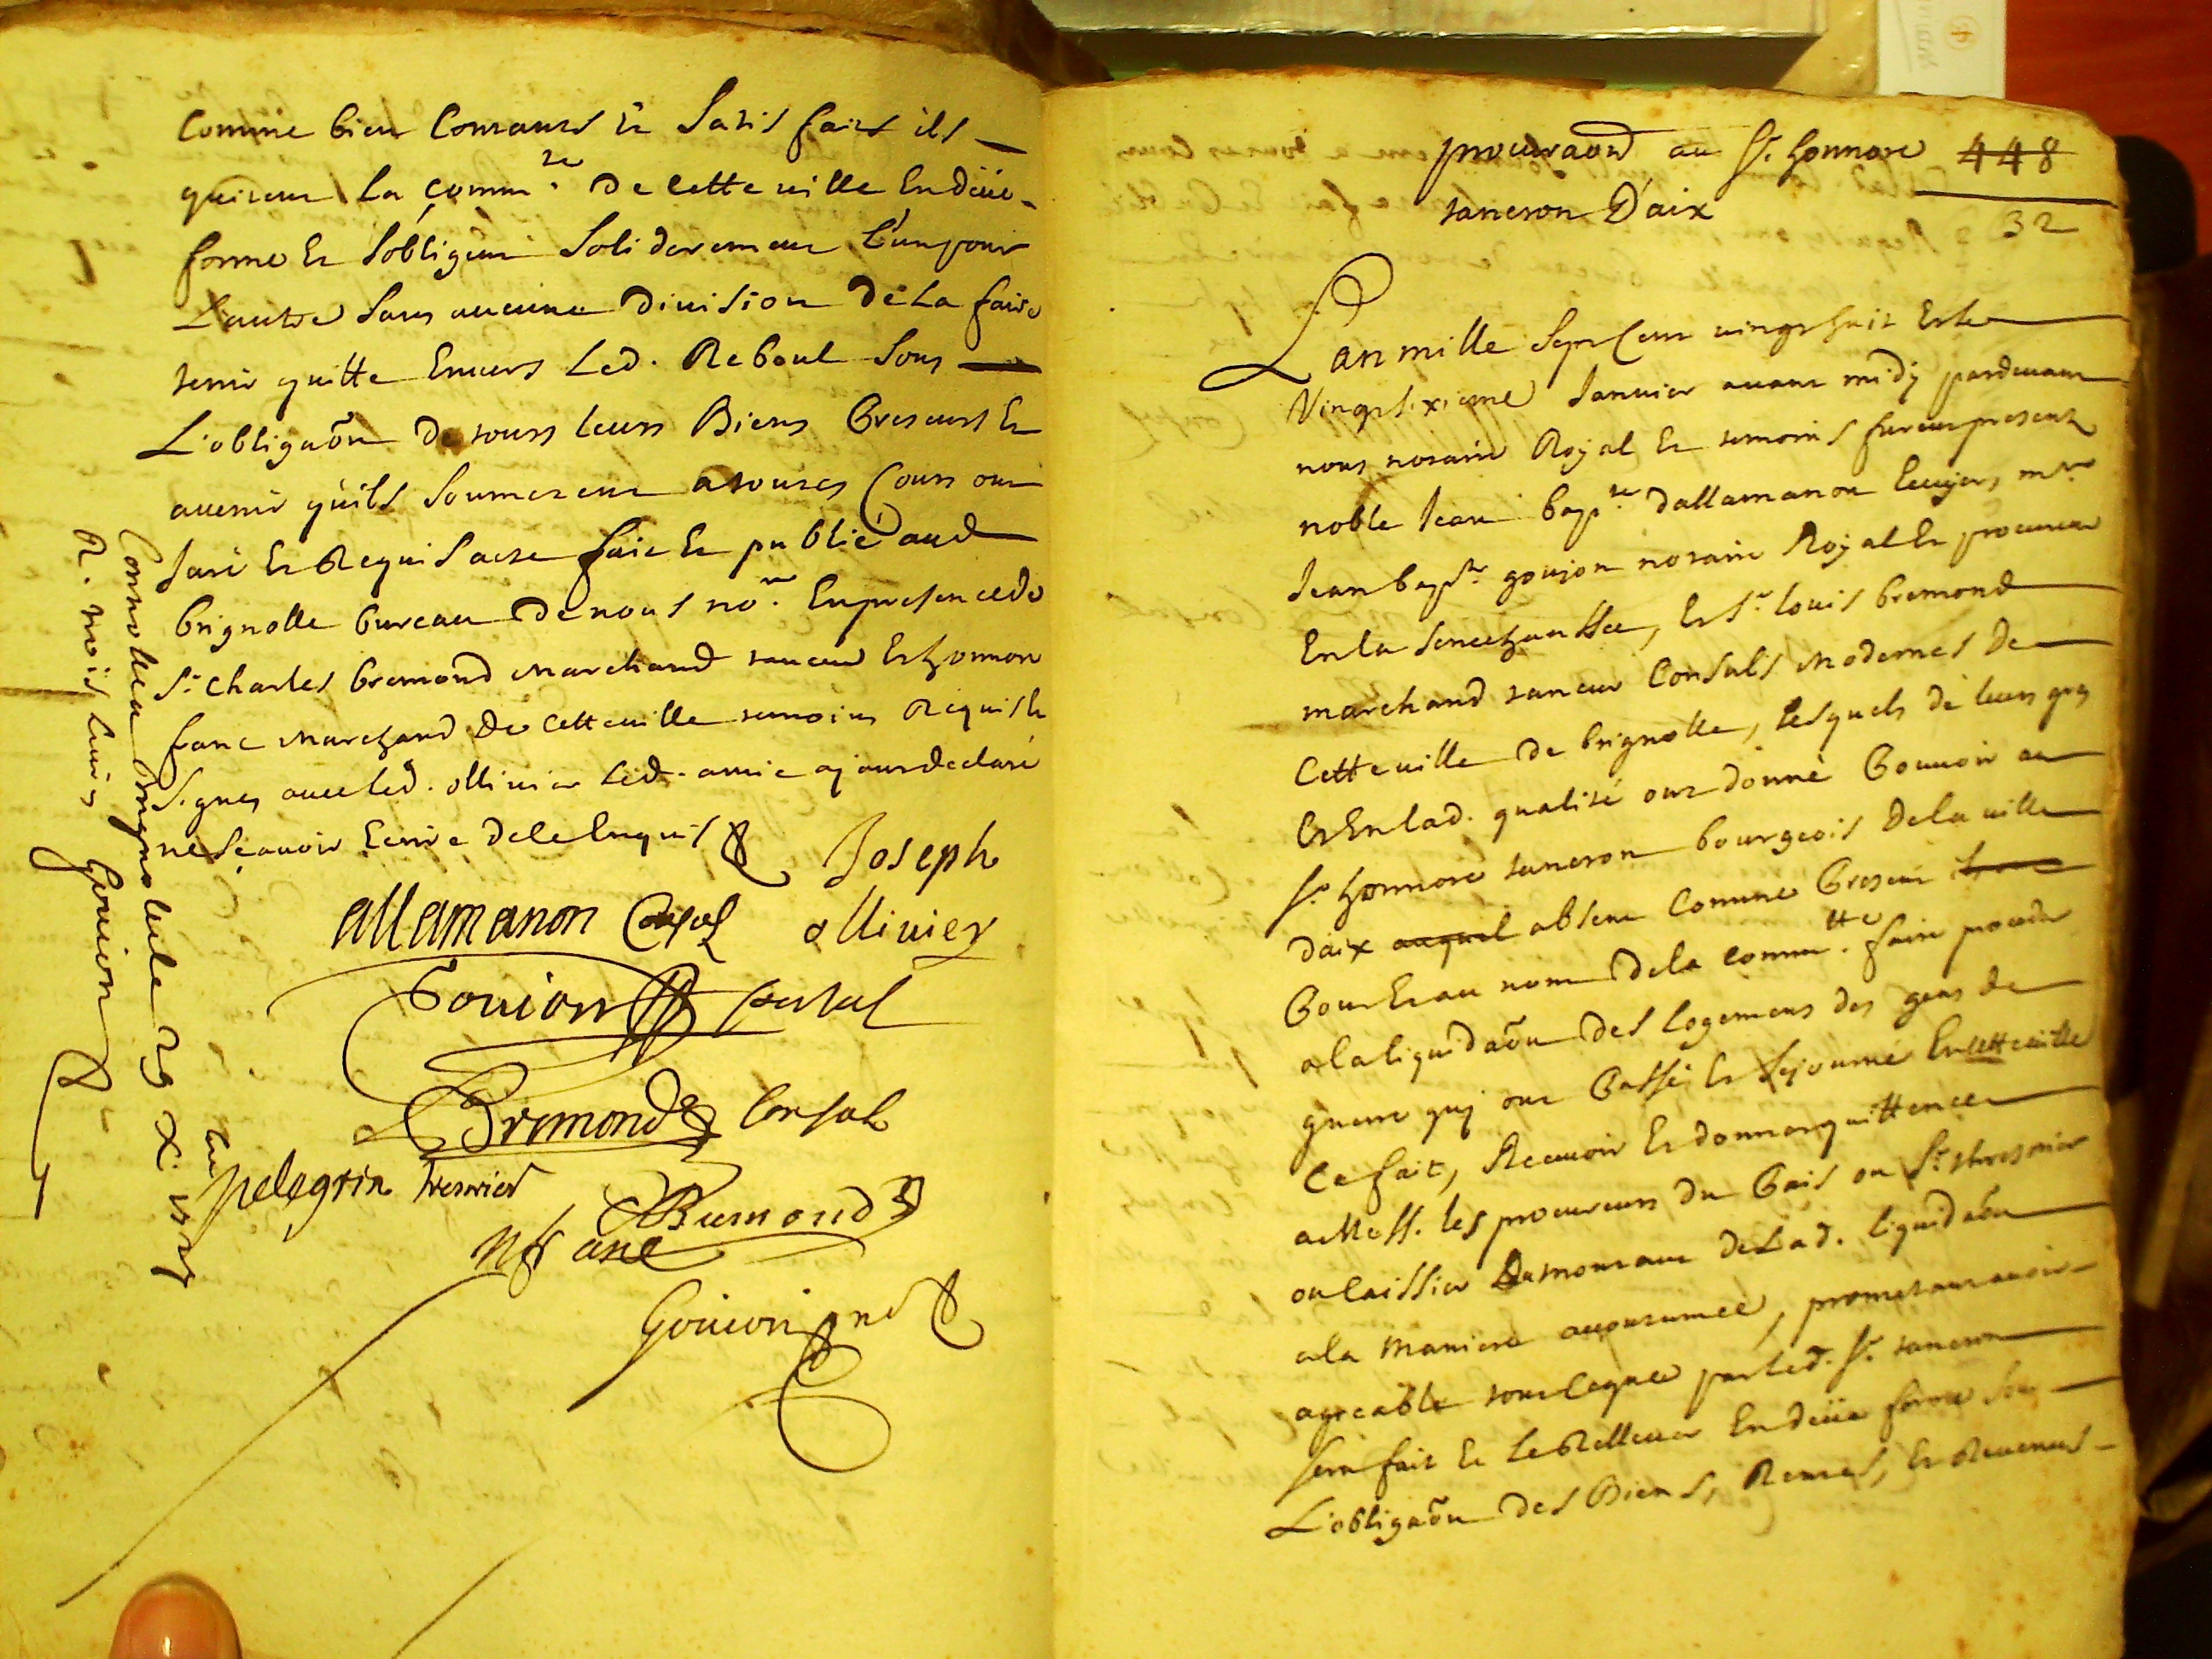 Comme bien Contants et Satisfaits ils
quitent la Comm.te de cette ville En deüe
forme Et S'obligent Soliderement L'un pour
L'autre Sans aucune Division De La faire
tenir quitte Envers Led. Reboul Sous
L'obligaõn de tous leurs Biens Presents Et
avenir quils Soumetent a toutes Cours ont
Juré Et Requis acte fait Et publié aud
brignolle bureau De nous no.re En presence de
Sr Charles bremond Marchand taneur Et honnoré
fanc Marchand De Cette ville temoins Requis Et
Signes avec Led. ollivier Led. amic ajant declaré
ne Sçavoir Ecrire De ce Enquis
Joseph
allamanon Consul ollivier
Gouion Consul
Bremond Consul
pelegrin tresorier
Bremond
Gouion nore
Controllé a Brignolle le 29
R. trois livres Gouion
procuraõn au Sr. honnoré 448
tancron D'aix 32
L'an mille Sept Cent vingt huit Et le
Vingt sixieme Janvier avant midy pardevant
nous notaire Royal Et temoins furent presents
noble Jean bapt.te Dallamanon Ecuyer, m.re
Jean bapt.te goujon notaire Royal Et procureur
En la Senechaussée, Et Sr. louis bremond
marchand taneur Consuls Modernes De
Cette ville de brignolle, Lesquels de leurs gres
Et En lad. qualité ont donné Pouvoir au
Sr. honnoré tancron bourgeois De la ville
D'aix auquel absent Comme Present
Pour Et au nom De la comm.tte faire proceder
a la liquidaõn Des logemens des gens de
guerre quj ont Passé Et Sejourné En cette ville
Ce fait, Recevoir Et donner quittence
a Mess. les procureurs du Pais ou Sr. thresorier
ou Caissier Du montant De Lad. liquidaõn
a la maniere accoutumée, prometant avoir
agreable tout ce que par Led. Sr. tancron
Sera fait Et Le Rellever En deüe forme Sous
L'obligaõn des Biens, Rentes, Et Revenus